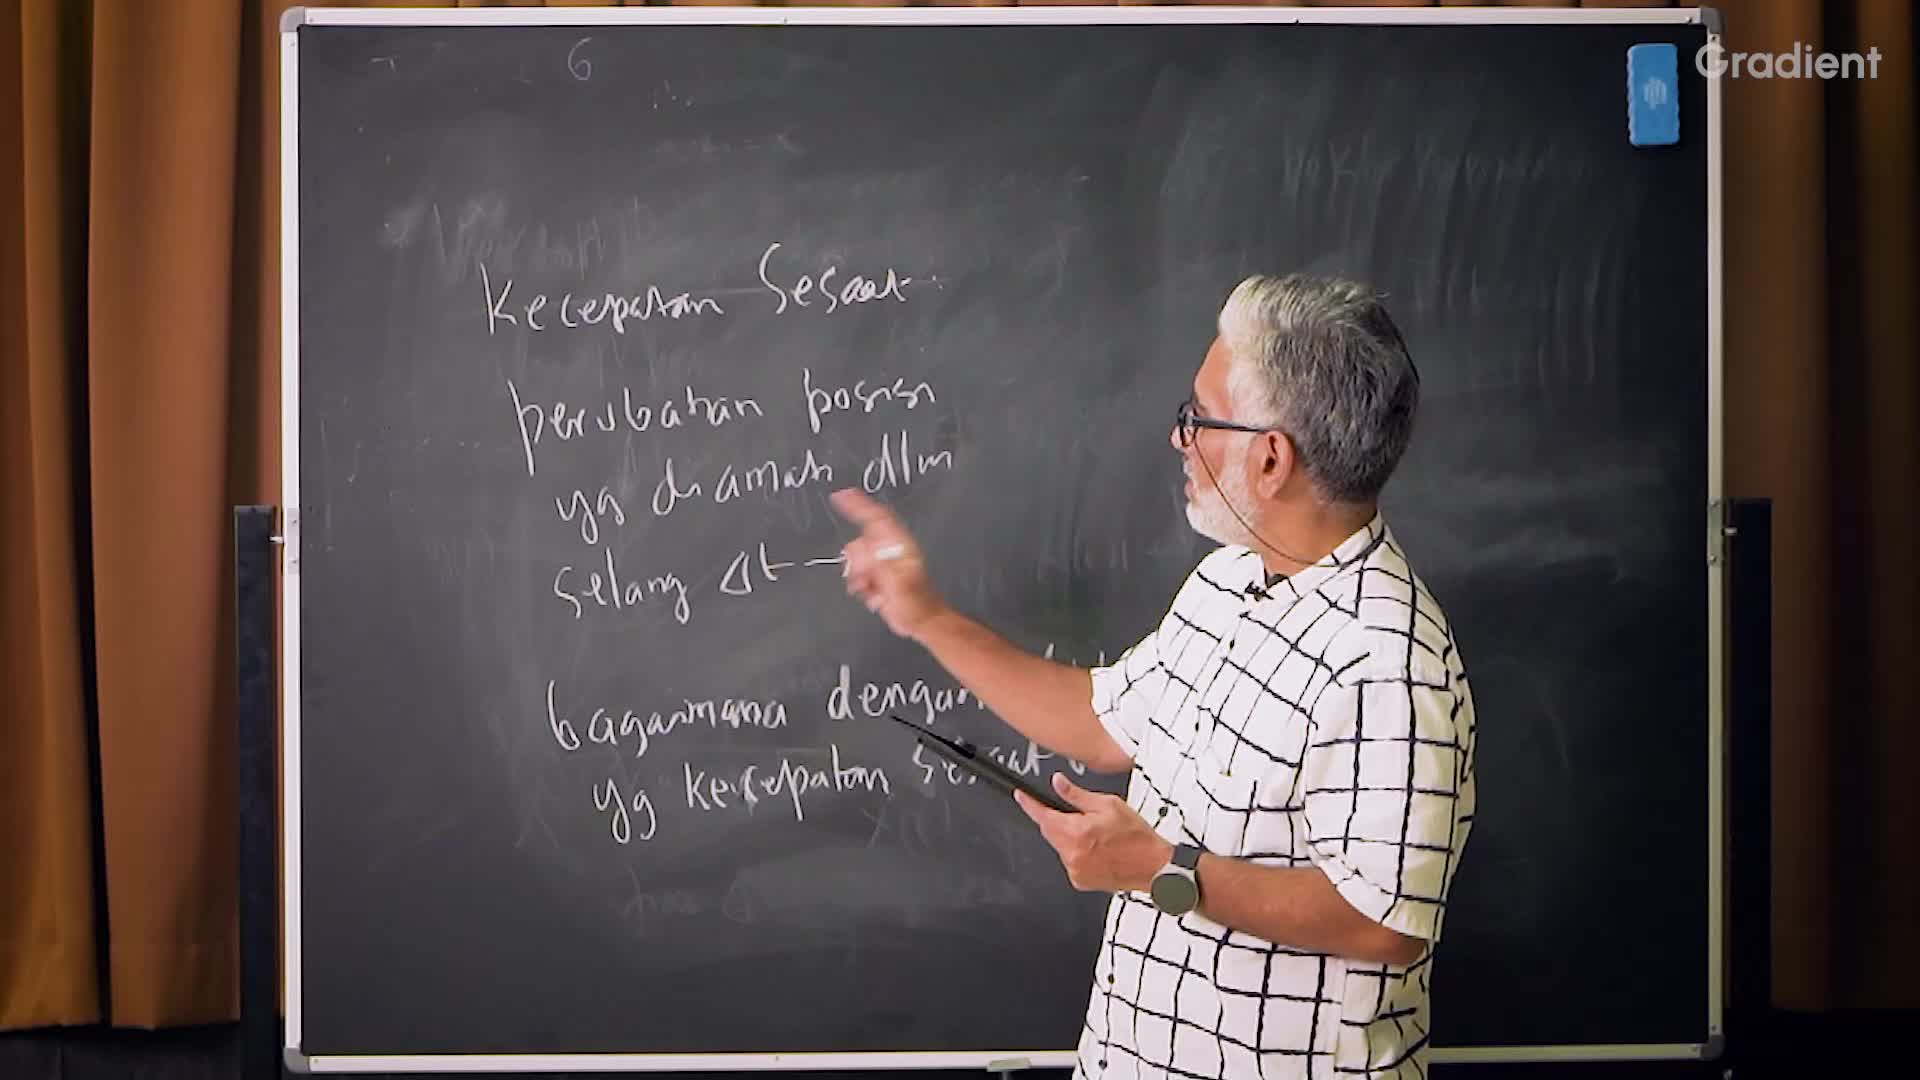 Gradient
6
Kecepatan Sesaat
perubahan posisi
yg diamati dlm
selang Δt →
bagaimana dengan
yg kecepatan sesaat